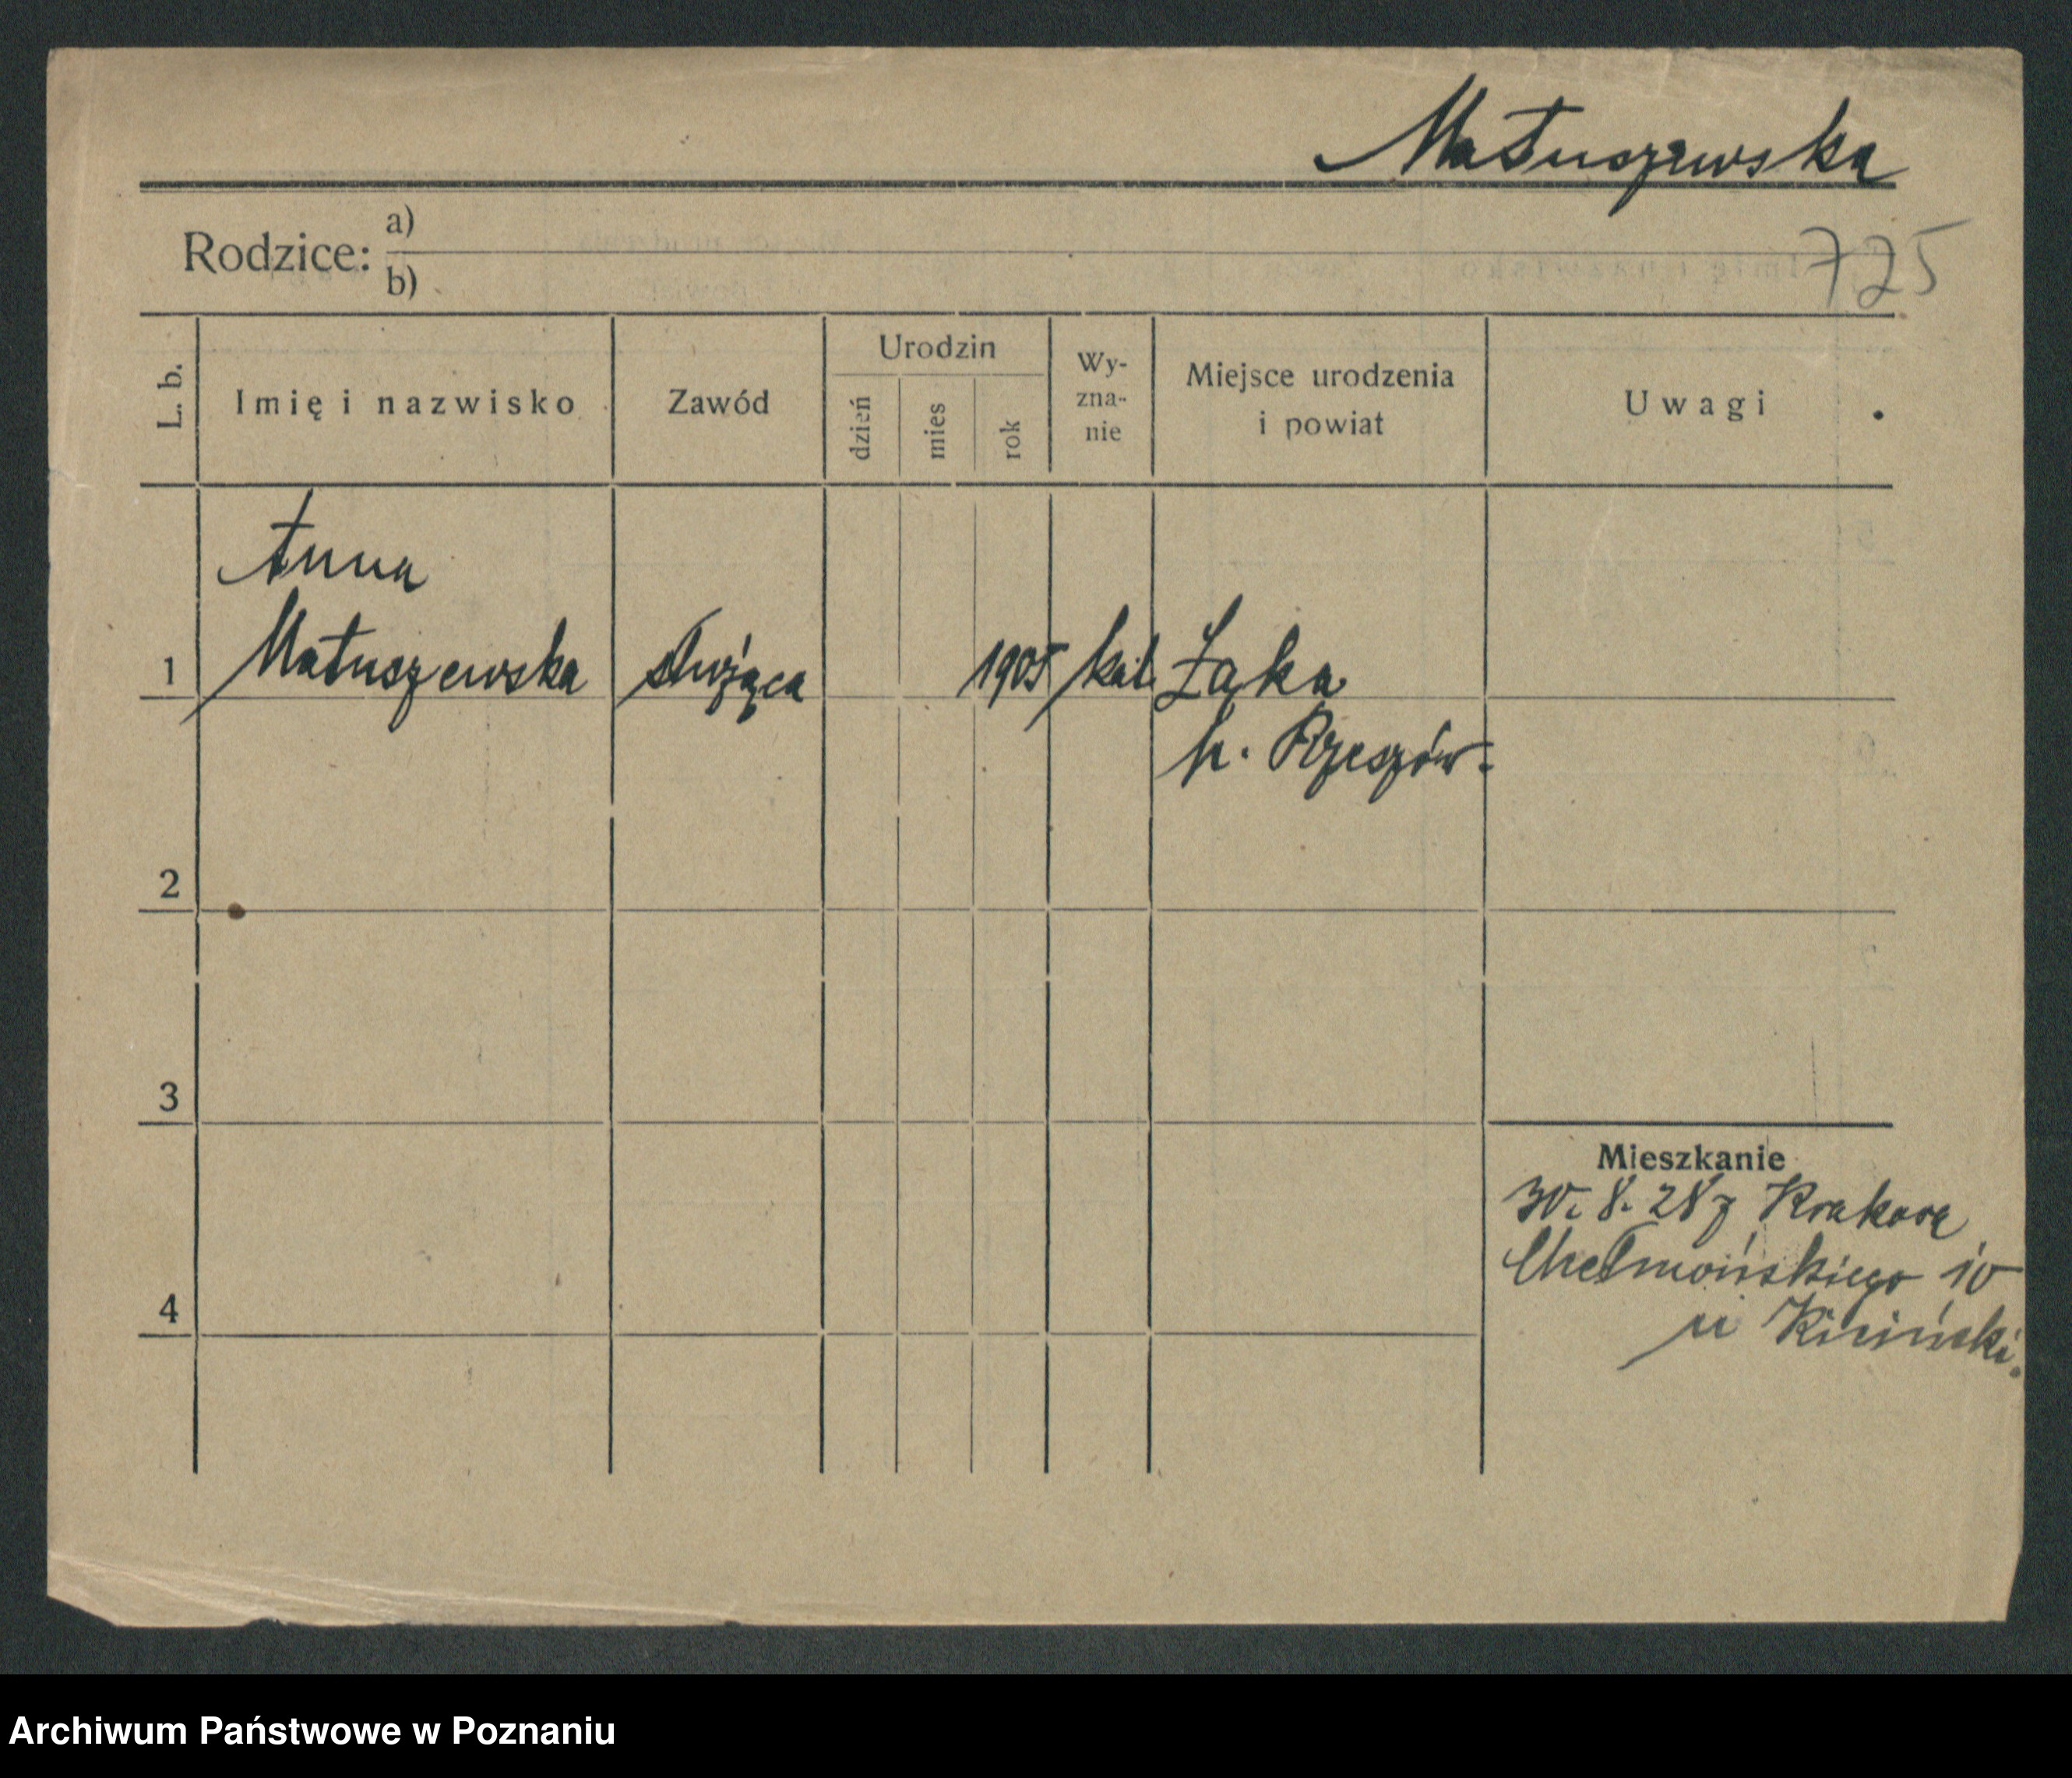 Matuszewska
725
Rodzice: a)
b)
L. b.
Imię i nazwisko
Zawód
Urodzin
dzień
mies
rok
Wy-
zna-
nie
Miejsce urodzenia
i powiat
Uwagi
Anna
1 Matuszewska służąca 1905 kat. Łąka
p. Rzeszów.
2
3
4
Mieszkanie
30. 8. 28 z Krakowa
Chełmońskiego 10
u
Archiwum Państwowe w Poznaniu